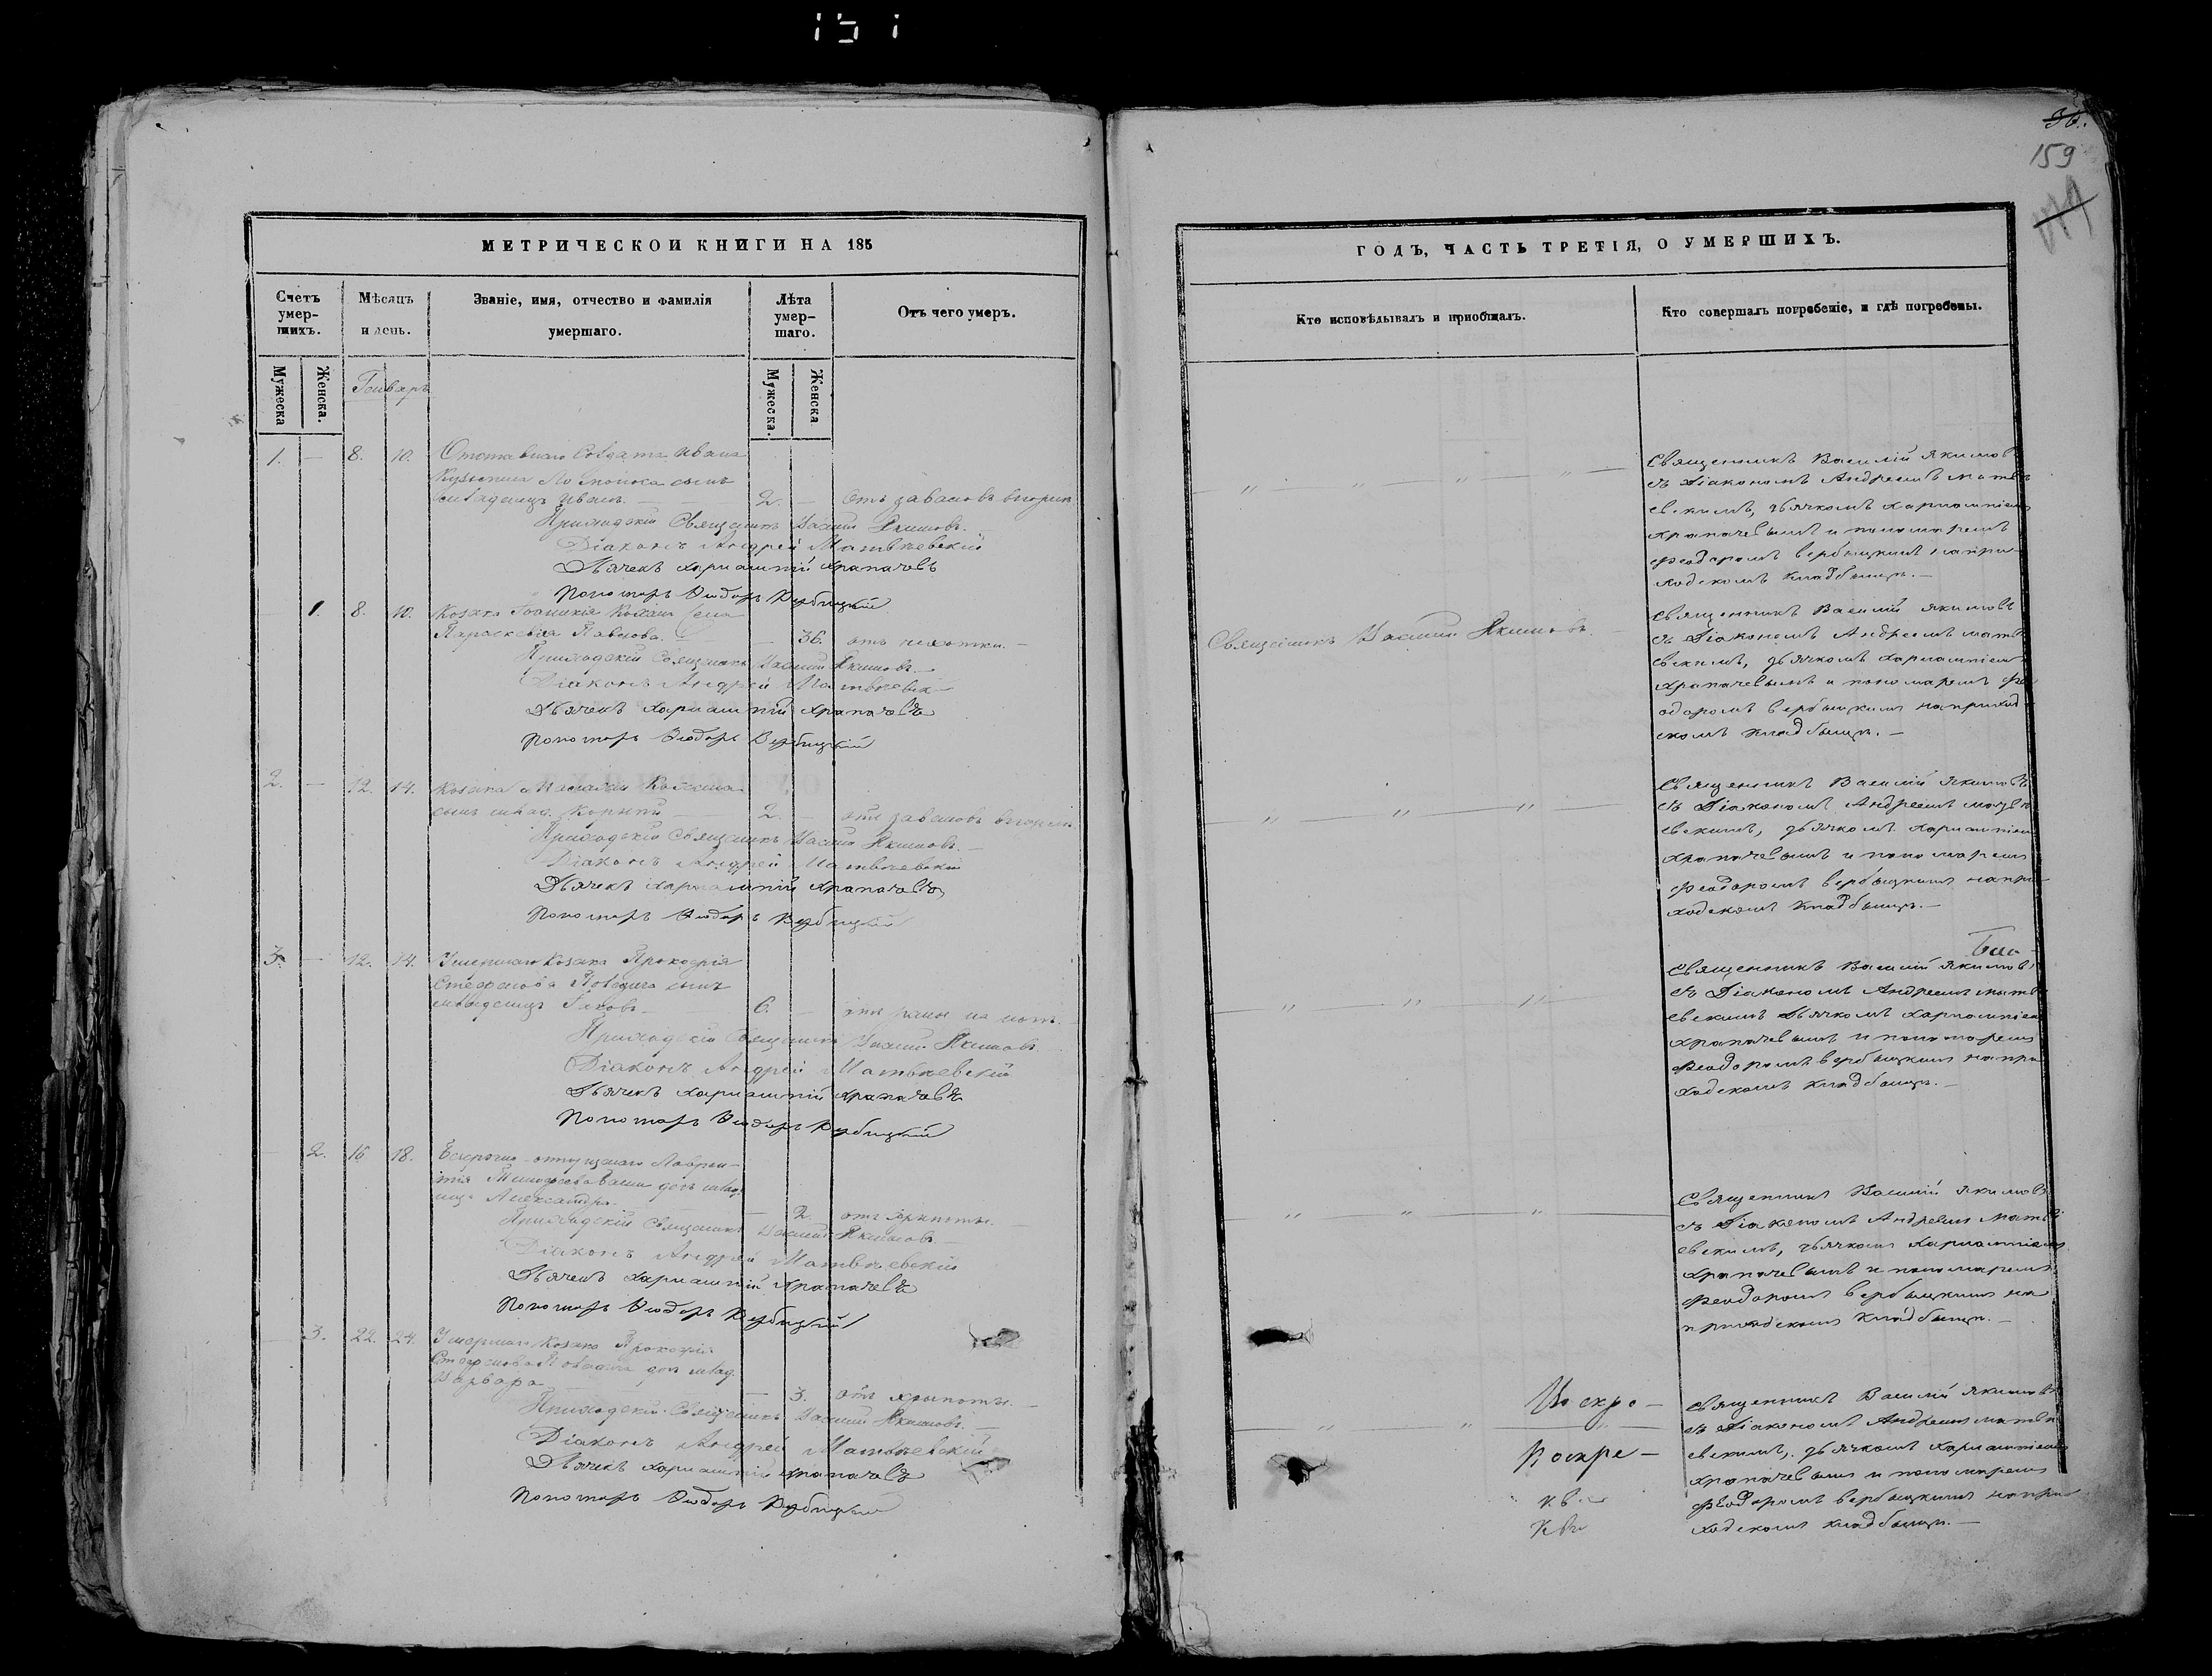 151
МЕТРИЧЕСКОЙ КНИГИ НА 185
Счетъ умер-шихъ.
Мѣсяцъ и день.
Званіе, имя, отчество и фамилія умершаго.
Лѣта умер-шаго.
Отъ чего умеръ.
Мужеска
Женска.
Генварь
Мужеска.
Женска
1. — 8. 10. Отставнаго Солдата Ивана
сынъ
младенецъ Иванъ. — 2. — Отъ
Приходскій Священникъ Василій Якимовъ.
Діаконъ Андрей Матвѣевскій
Дьячекъ Харлампій Храпачевъ
Пономарь Ѳеодоръ Вербицкій
1. 8. 10. Козака жена
Параскевія Павлова. — 36. отъ чахотки. —
Приходскій Священникъ Василій Якимовъ. —
Діаконъ Андрей Матвѣевскій
Дьячекъ Харлампій Храпачевъ
Пономарь Ѳеодоръ Вербицкій
2. — 12. 14. Козака
сынъ млад. — 2. — отъ
Приходскій Священникъ Василій Якимовъ. —
Діаконъ Андрей Матвѣевскій
Дьячекъ Харлампій Храпачевъ
Пономарь Ѳеодоръ Вербицкій
3. — 12. 14. Умершаго Козака Прокофія
Стефанова сынъ
младенецъ Іаковъ. — 6. — отъ раны на
Приходскій Священникъ Василій Якимовъ.
Діаконъ Андрей Матвѣевскій
Дьячекъ Харлампій Храпачевъ
Пономарь Ѳеодоръ Вербицкій
2. 16. 18. Безсрочно-отпускнаго Лаврен-
тія дочь млад.
Александра. — 2. отъ крапоты. —
Приходскій Священникъ Василій Якимовъ. —
Діаконъ Андрей Матвѣевскій
Дьячекъ Харлампій Храпачевъ
Пономарь Ѳеодоръ Вербицкій
3. 22. 24. Умершаго Козака Прокофія
Стефанова дочь млад.
Варвара — 3. отъ хрипоты. —
Приходскій Священникъ Василій Якимовъ. —
Діаконъ Андрей Матвѣевскій
Дьячекъ Харлампій Храпачевъ
Пономарь Ѳеодоръ Вербицкій
36.
159
ГОДЪ, ЧАСТЬ ТРЕТІЯ, О УМЕРШИХЪ.
Кто исповѣдывалъ и пріобщалъ.
Кто совершалъ погребеніе, и гдѣ погребены.
Священникъ Василій Якимов
съ Діакономъ Андреемъ Матвѣ
евскимъ, дьячкомъ Харлампіемъ
Храпачевымъ и пономаремъ
Феодоромъ Вербицкимъ на при-
ходскомъ кладбищѣ. —
Священникъ Василій Якимовъ. —
Священникъ Василій Якимовъ
съ Діакономъ Андреемъ Матвѣ
евскимъ, дьячкомъ Харлампіемъ
Храпачевымъ и пономаремъ Фе
одоромъ Вербицкимъ на приход
скомъ кладбищѣ. —
Священникъ Василій Якимовъ
съ Діакономъ Андреемъ Матвѣ
евскимъ, дьячкомъ Харлампіем
Храпачевымъ и пономаремъ
Феодоромъ Вербицкимъ на при
ходскомъ кладбищѣ. —
Священникъ Василій Якимовъ
съ Діакономъ Андреемъ Матвѣ
евскимъ Дьячкомъ Харлампіем
Храпачевымъ и пономаремъ
Феодоромъ Вербицкимъ на при
ходскомъ кладбищѣ. —
Священникъ Василій Якимовъ
съ Діакономъ Андреемъ Матвѣ
евскимъ, дьячкомъ Харлампіемъ
Храпачевымъ и пономаремъ
Феодоромъ Вербицкимъ на
приходскомъ кладбищѣ. —
Священникъ Василій Якимовъ
съ Діакономъ Андреемъ Матвѣ
евскимъ, дьячкомъ Харлампіемъ
Храпачевымъ и пономаремъ
Феодоромъ Вербицкимъ на при
ходскомъ кладбищѣ. —